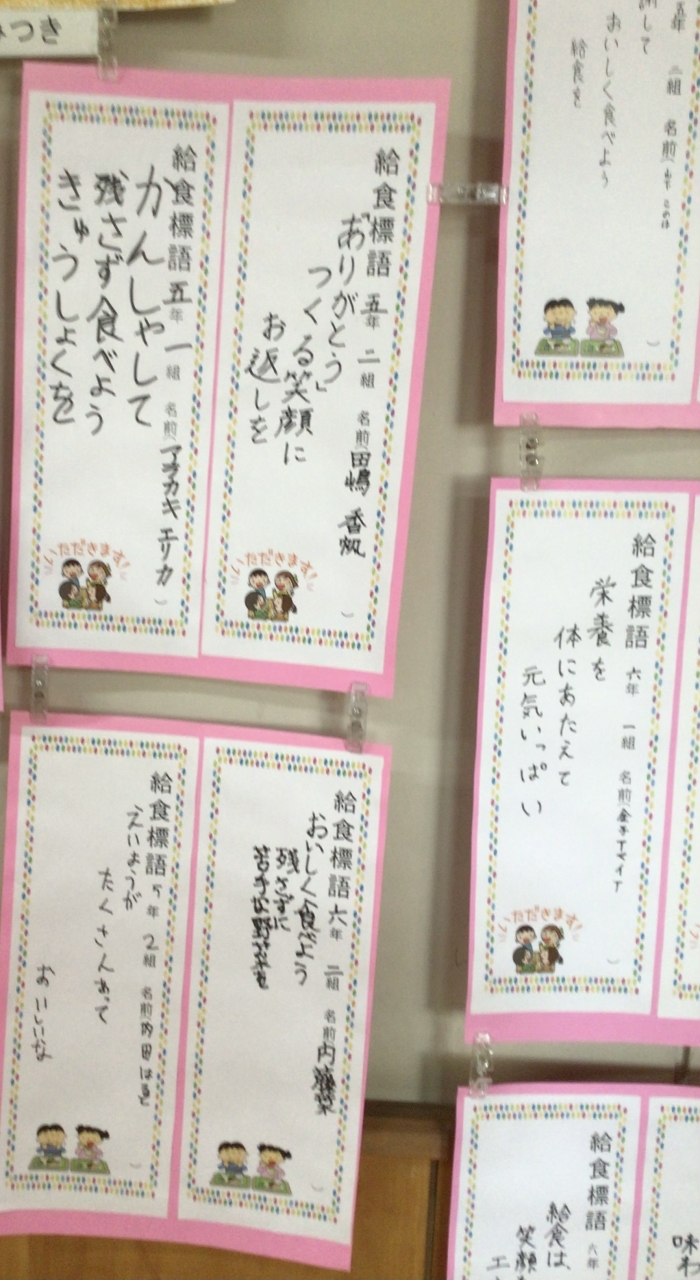 みつき
給食標語 五年 一組 名前(アラカキ エリカ)
かんしゃして
残さず食べよう
きゅうしょくを
いただきます!
給食標語 五年 二組 名前(田嶋 香帆)
「ありがとう」
つくる笑顔に
お返しを
いただきます!
五年 二組 名前(山下 このは)
して
おいしく食べよう
給食を
給食標語 5年 2組 名前(内田 はると)
えいようが
たくさんあって
おいしいな
給食標語 六年 二組 名前(内
おいしく食べよう
残さずに
苦手な野菜を
給食標語 六年 一組 名前(金子
栄養を
体にあたえて
元気いっぱい
いただきます!
給食標語 六年
給食は、
笑顔
味わ